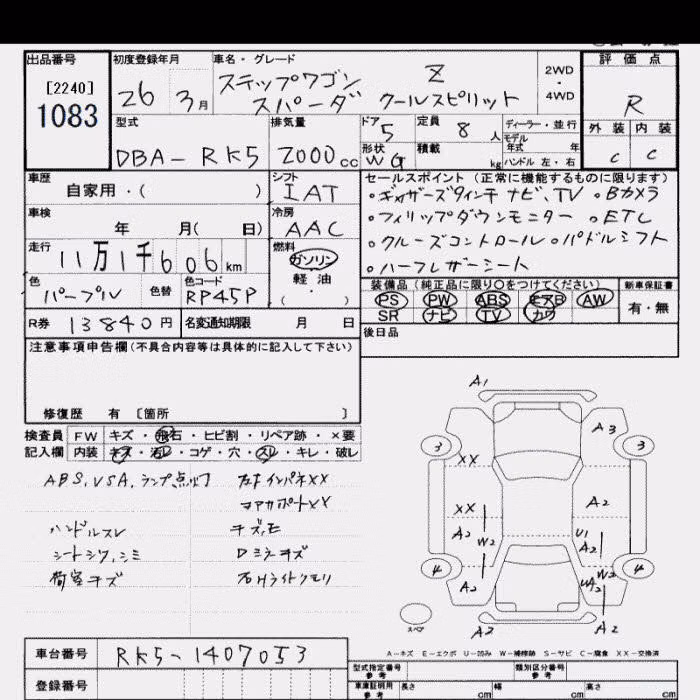 出品番号
[2240]
1083
初度登録年月
26 3月
車名・グレード
ステップワゴン Z
スパーダ クールスピリット
2WD
・
4WD
評価点
R
外装 内装
C C
型式
DBA-RK5
排気量
2000cc
ドア 5
定員 8人
ディーラー・並行
モデル
年式 年
形状 WG
積載 kg
ハンドル 左・右
車歴
自家用・( )
シフト
IAT
車検
年 月( 日)
冷房
AAC
走行
11万1千606km
燃料
ガソリン
・
軽油
・
( )
色
パープル
色替
色コード
RP45P
R券 13840円
名変通知期限 月 日
セールスポイント(正常に機能するものに限ります)
・ギャザーズ9インチナビ、TV ・Bカメラ
・フィリップダウンモニター ・ETC
・クルーズコントロール ・パドルシフト
・ハーフレザーシート
装備品(純正品に限り○をつけてください)
PS PW ABS エアB AW
SR ナビ TV カワ
新車保証書
有・無
後日品
注意事項申告欄(不具合内容等は具体的に記入して下さい)
修復歴 有 〔箇所 〕
検査員 FW キズ・飛石・ヒビ割・リペア跡・×要
記入欄 内装 キズ・汚レ・コゲ・穴・スレ・キレ・破レ
ABS,VSA,ランプ点灯 左キインパネXX
コアサポートXX
ハンドルスレ キズ,モ
シートシワ,シミ Dミラーキズ
荷室キズ 右Hライトクモリ
A1
A3
3 3
XX
XX A2
A2 W2 U1 A2
4 4
A2 UA2 W2
スペア
A2 A2
A-キズ E-エクボ U-凹み W-補修跡 S-サビ C-腐食 XX-交換済
車台番号 RK5-1407053
登録番号
型式指定番号
参考
類別区分番号
参考
車庫証明用
参考
長さ cm 幅 cm 高さ cm